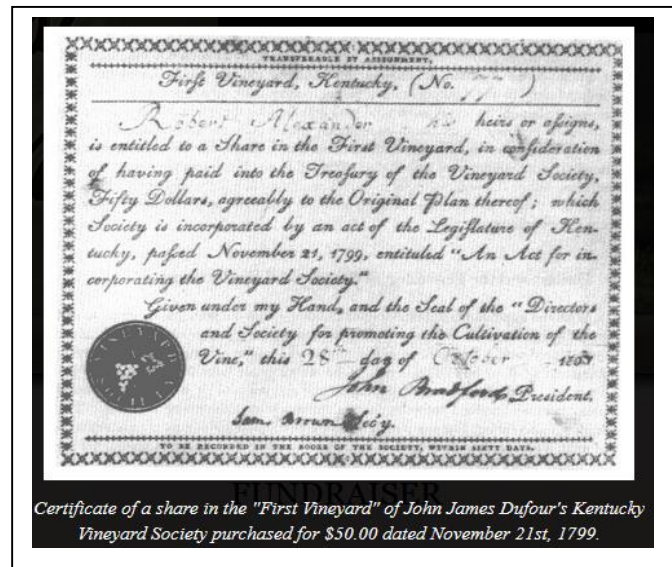 TRANSFERABLE BY ASSIGNMENT,
First Vineyard, Kentucky, (No. 77 )
Robert Alexander his heirs or aſsigns,
is entitled to a Share in the First Vineyard, in conſideration
of having paid into the Treaſury of the Vineyard Society,
Fifty Dollars, agreeably to the Original Plan thereof; which
Society is incorporated by an act of the Legiſlature of Ken-
tucky, paſsed November 21, 1799, entituled "An Act for in-
corporating the Vineyard Society."
Given under my Hand, and the Seal of the "Directors
and Society for promoting the Cultivation of the
Vine," this 28th day of October
John Bradford President.
Sam Brown Sec'y.
VINEYARD SOCIETY
TO BE RECORDED IN THE BOOKS OF THE SOCIETY, WITHIN SIXTY DAYS.
FUNDRAISER
Certificate of a share in the "First Vineyard" of John James Dufour's Kentucky
Vineyard Society purchased for $50.00 dated November 21st, 1799.